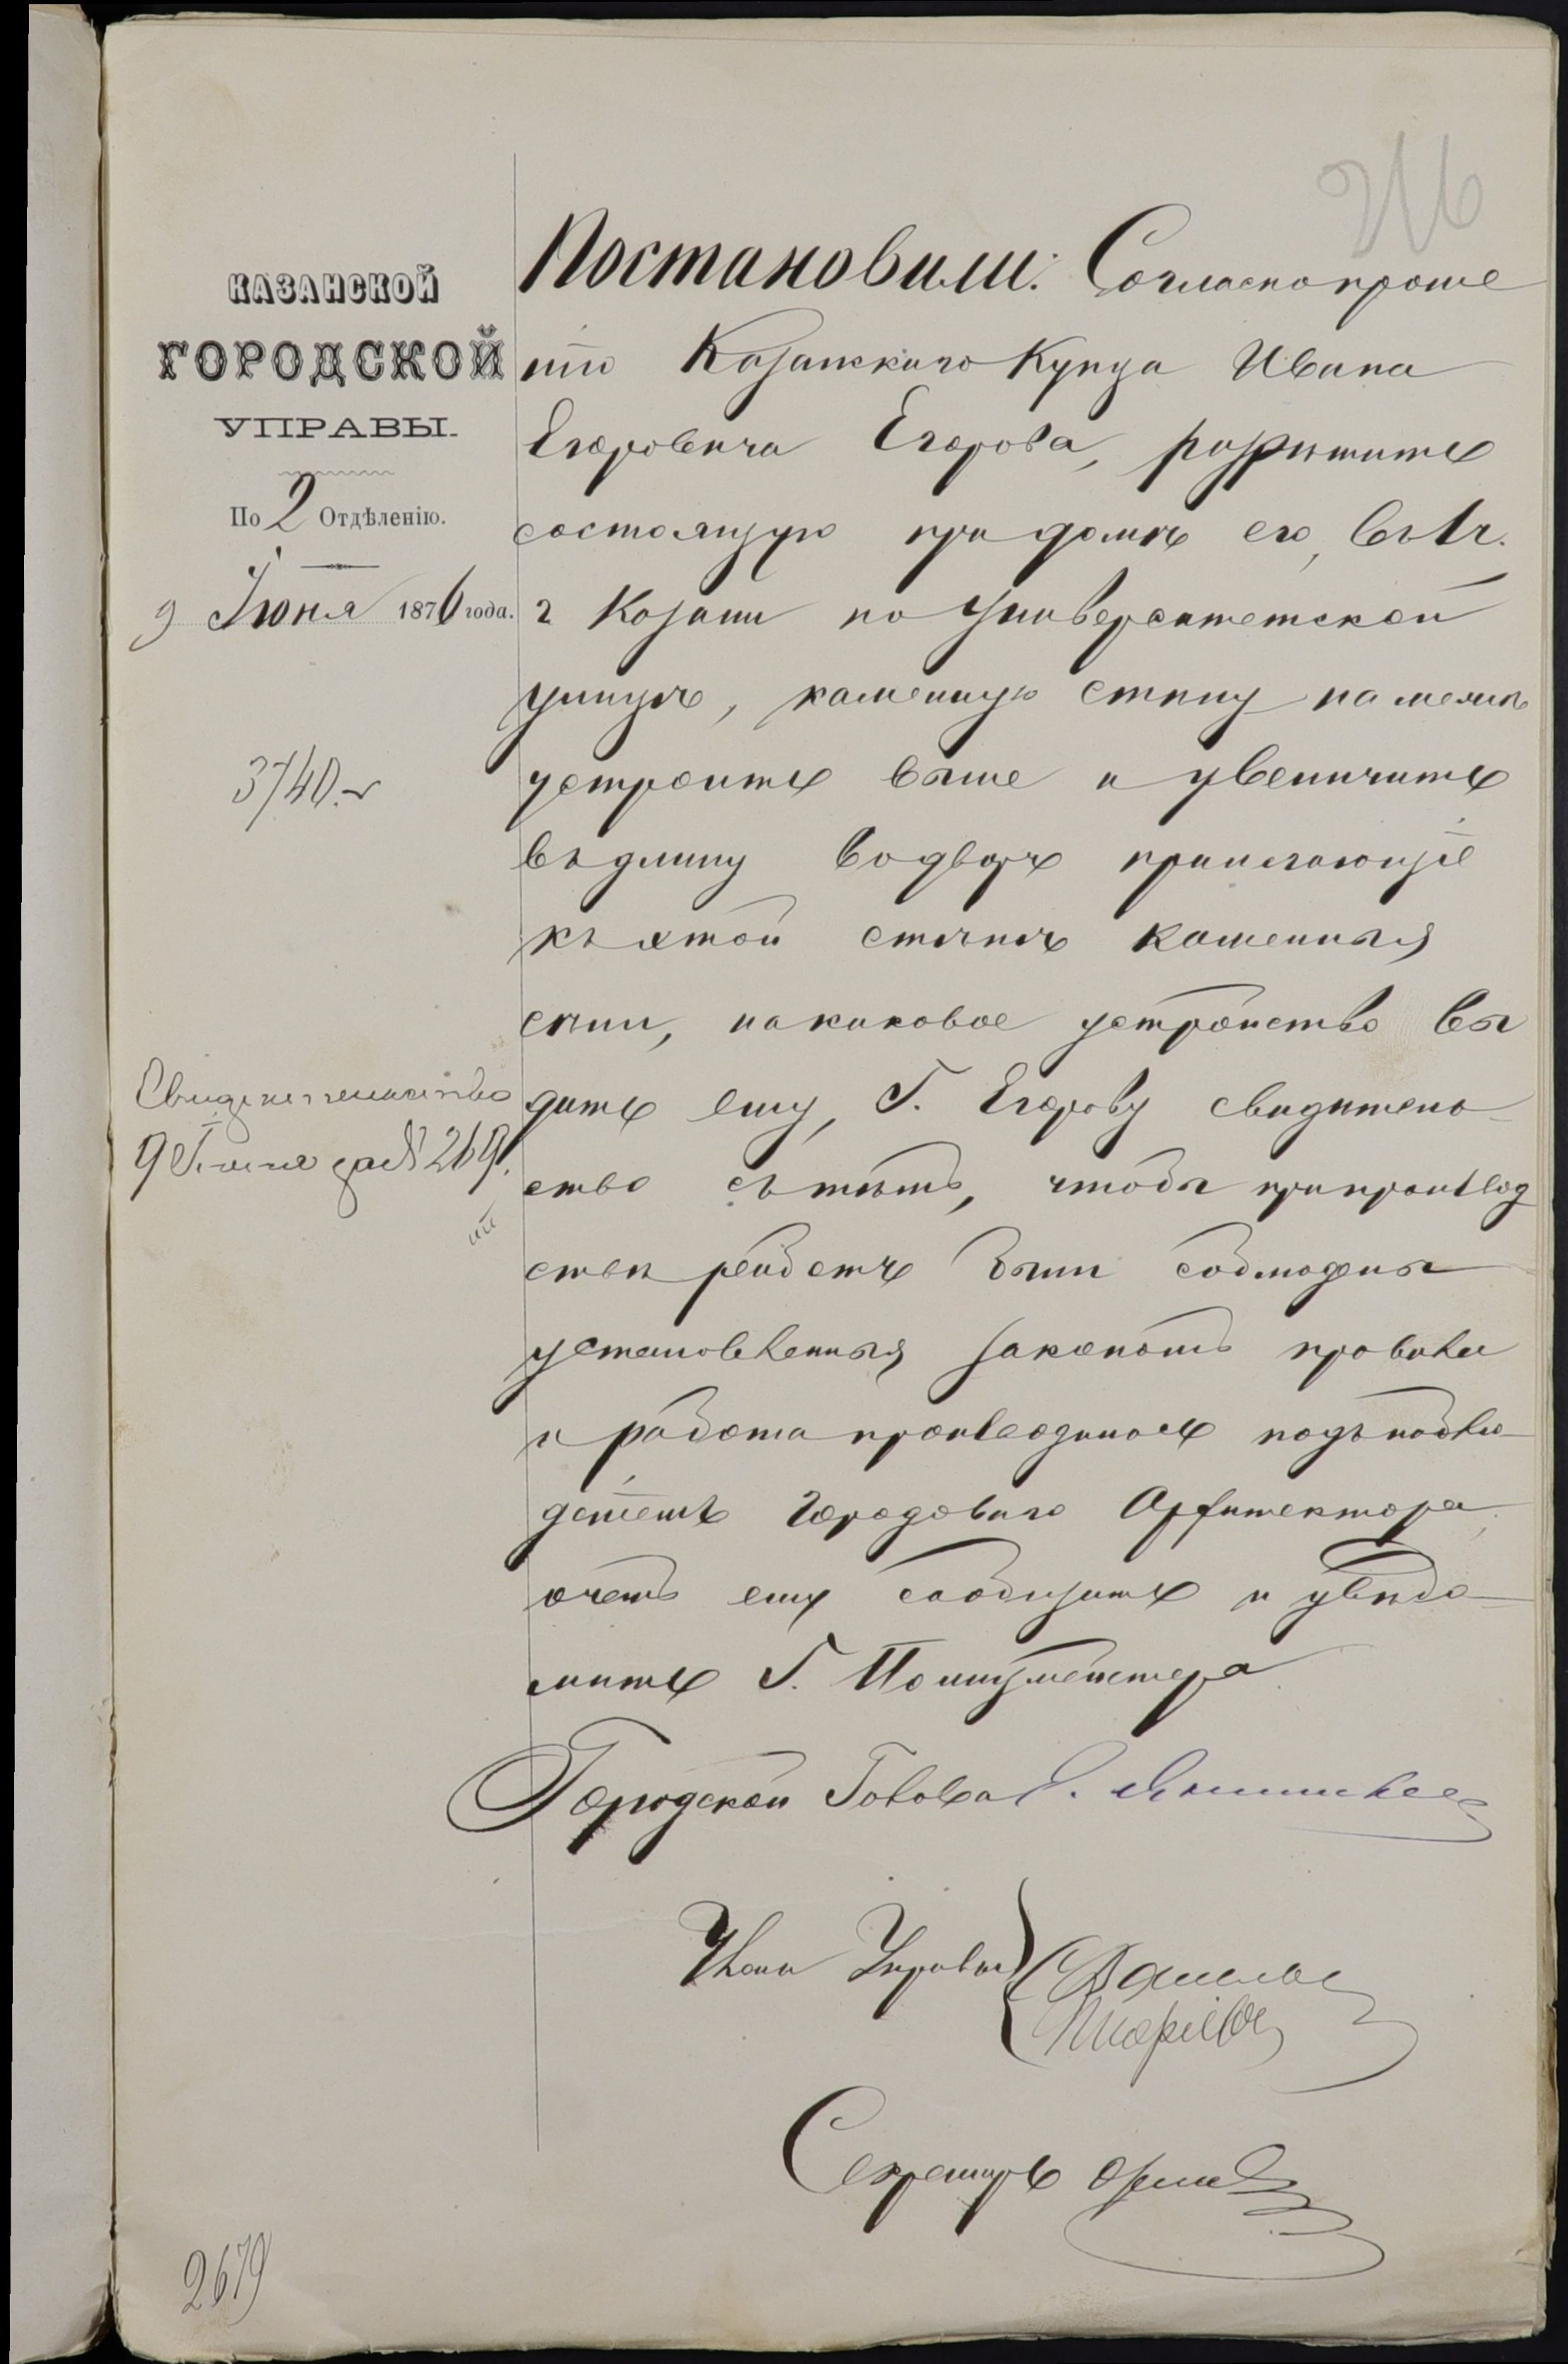 216
КАЗАНСКОЙ
ГОРОДСКОЙ
УПРАВЫ.
По 2 Отдѣленію.
9 Іюня 1876 года.
3740.
Свидетельство
9 Іюня за № 269.
2679
Постановили: Согласно проше
нію Казанскаго Купца Ивана
Егоровича Егорова, разрѣшить
состоящую при домѣ его, въ 1 ч.
г Казани по Университетской
улицѣ, каменную стѣну
устроить выше и увеличить
въ длину во дворѣ прилегающіе
къ этой стѣнѣ каменныя
сѣни, на каковое устройство вы
дать ему, Г. Егорову свидѣтель
ство съ тѣмъ, чтобы при производ
ствѣ работъ были соблюдены
установленныя закономъ правила
и работа производилась подъ наблю
деніемъ Городоваго Архитектора
о чемъ ему сообщить и увѣдо
мить Г. Полицмейстера
Городской Голова Э. Янишевск
Члены Управы
Секретарь